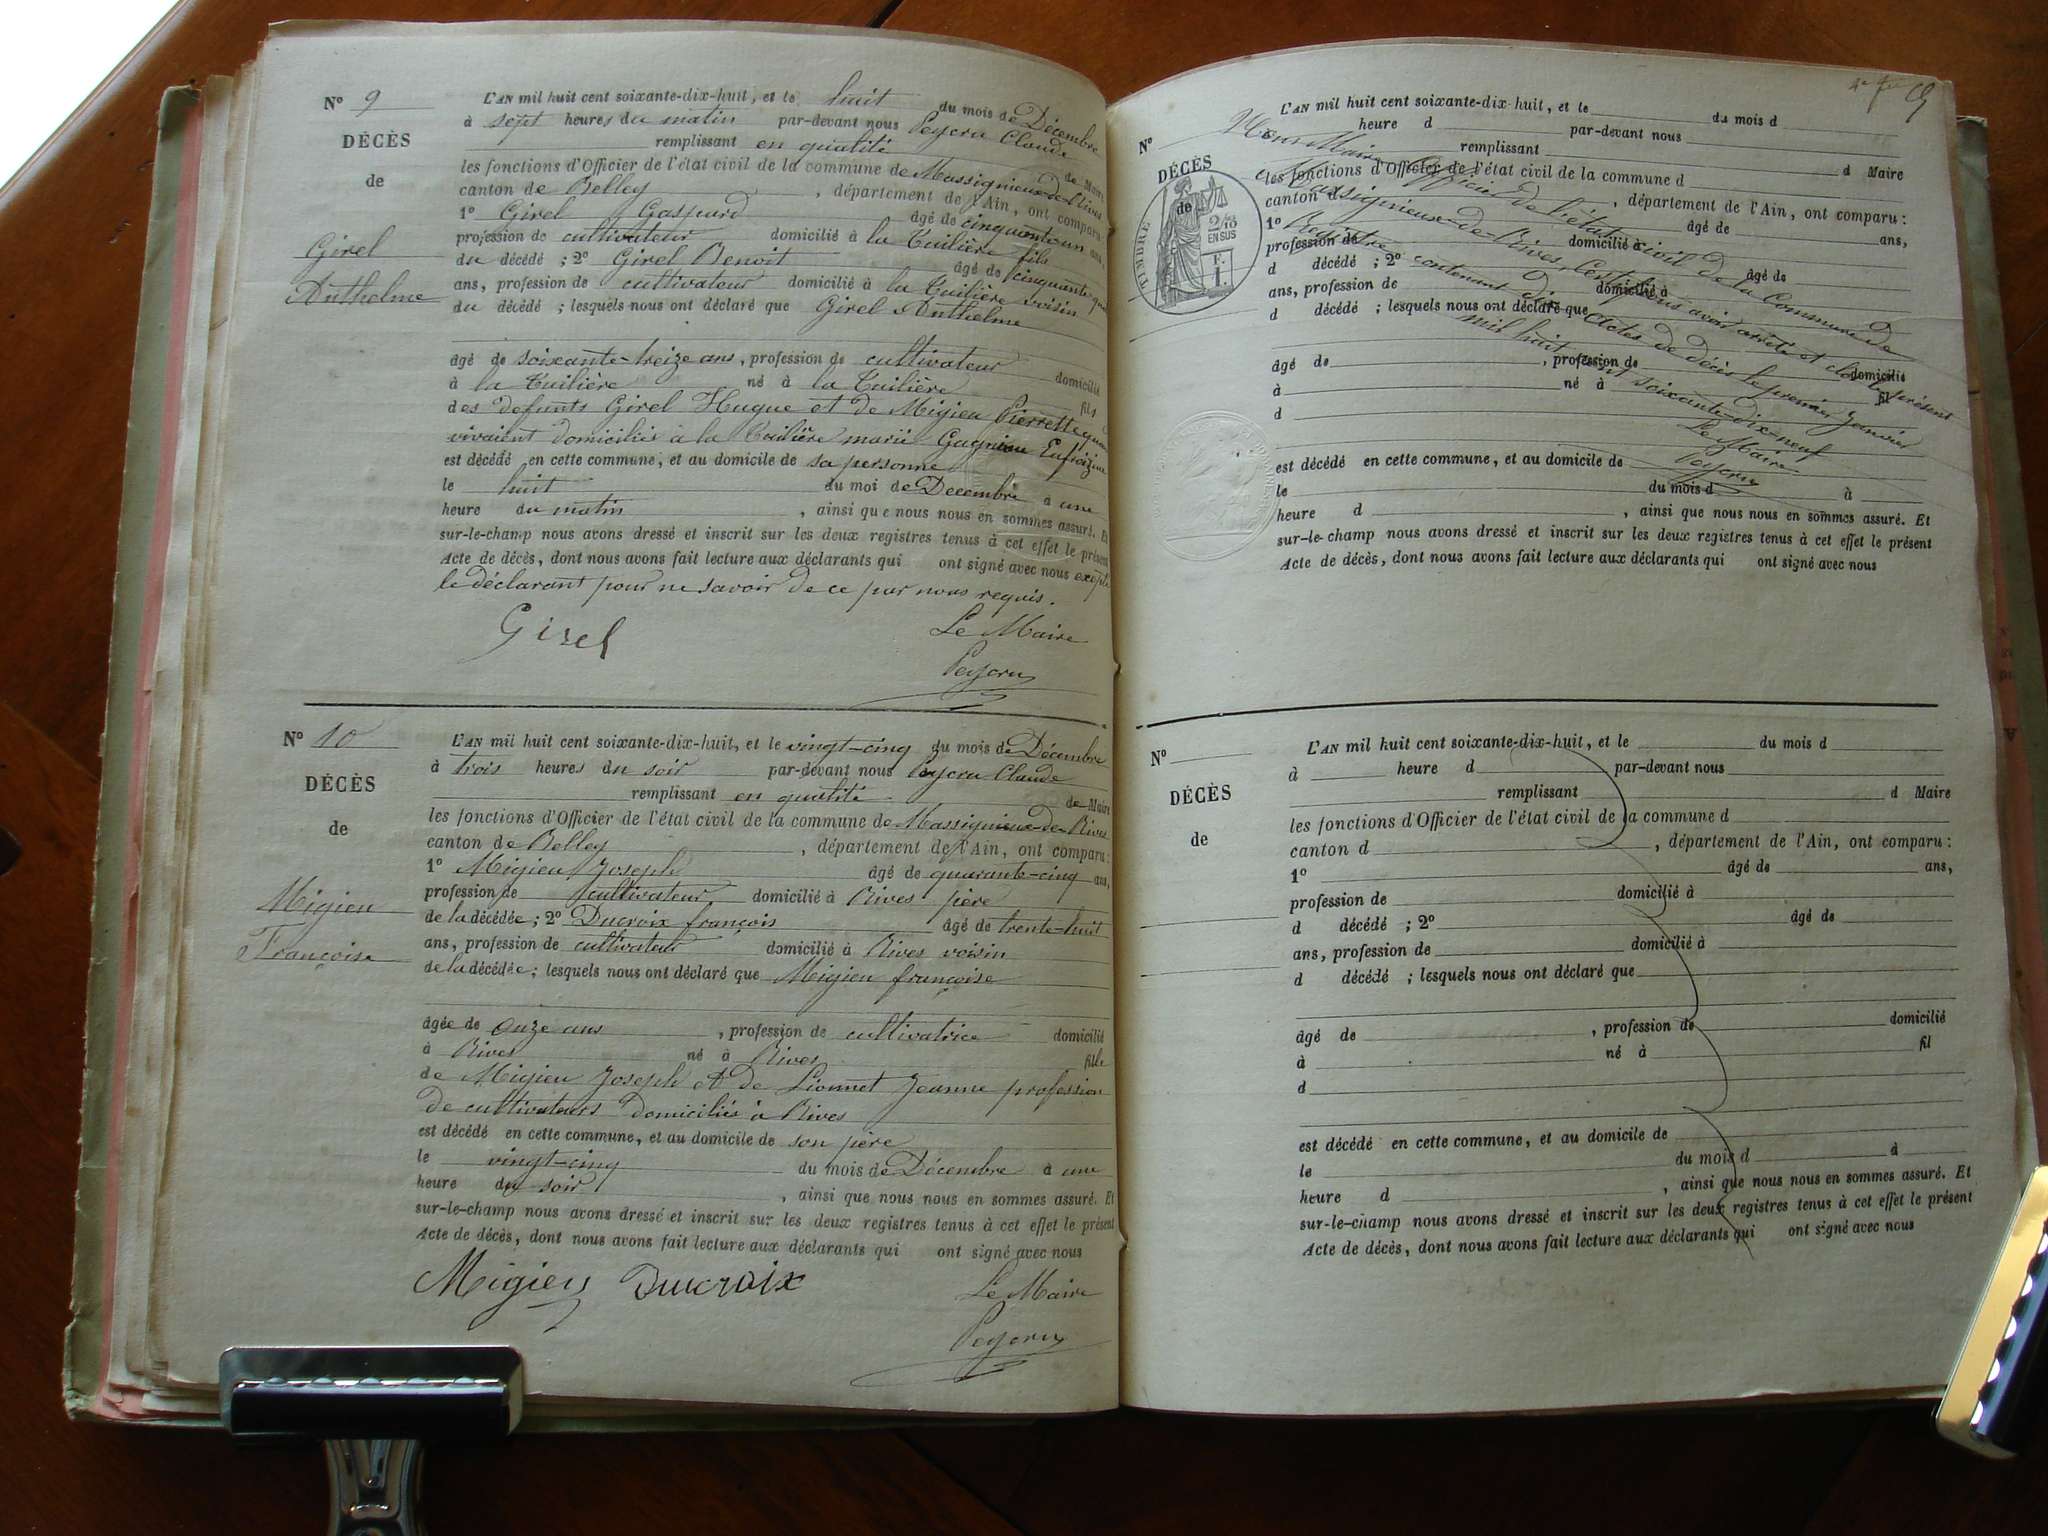 N° 9
DÉCÈS
de
Girel
Anthelme
L'AN mil huit cent soixante-dix-huit, et le huit du mois de Décembre
à sept heures du matin par-devant nous Peycru Claude
remplissant en qualité de Maire
les fonctions d'Officier de l'état civil de la commune de Massignieux-de-Rives
canton de Belley, département de l'Ain, ont comparu:
1° Girel Gaspard âgé de cinquante un ans,
profession de cultivateur domicilié à la Tuilière fils
du décédé ; 2° Girel Benoit âgé de cinquante
ans, profession de cultivateur domicilié à la Tuilière voisin
du décédé ; lesquels nous ont déclaré que Girel Anthelme
âgé de soixante-treize ans, profession de cultivateur domicilié
à la Tuilière né à la Tuilière fils
des defunts Girel Hugue et de Migieu Pierrette quand
vivaient domiciliés à la Tuilière marié Gagnieu
est décédé en cette commune, et au domicile de sa personne
le huit du moi de Decembre à une
heure du matin, ainsi que nous nous en sommes assuré. Et
sur-le-champ nous avons dressé et inscrit sur les deux registres tenus à cet effet le présent
Acte de décès, dont nous avons fait lecture aux déclarants qui ont signé avec nous excepté
le déclarant pour ne savoir de ce par nous requis.
Girel
Le Maire
Peycru
N° 10
DÉCÈS
de
Migieu
Françoise
L'AN mil huit cent soixante-dix-huit, et le vingt-cinq du mois de Décembre
à trois heures du soir par-devant nous Peycru Claude
remplissant en qualité de Maire
les fonctions d'Officier de l'état civil de la commune de Massignieux-de-Rives
canton de Belley, département de l'Ain, ont comparu:
1° Migieu Joseph âgé de quarante-cinq ans,
profession de cultivateur domicilié à Rives père
de la décédée ; 2° Ducroix françois âgé de trente-huit
ans, profession de cultivateur domicilié à Rives voisin
de la décédée ; lesquels nous ont déclaré que Migieu françoise
âgée de onze ans, profession de cultivatrice domicilié
à Rives né à Rives fille
de Migieu Joseph et de Lionnet Jeanne profession
de cultivateurs domiciliés à Rives
est décédé en cette commune, et au domicile de son père
le vingt-cinq du mois de Décembre à une
heure du soir, ainsi que nous nous en sommes assuré. Et
sur-le-champ nous avons dressé et inscrit sur les deux registres tenus à cet effet le présent
Acte de décès, dont nous avons fait lecture aux déclarants qui ont signé avec nous
Migieu Ducroix
Le Maire
Peycru
N°
DÉCÈS
de
TIMBRE
2/10
EN SUS
F.
1.
L'AN mil huit cent soixante-dix-huit, et le du mois d
heure d par-devant nous
remplissant d Maire
les fonctions d'Officier de l'état civil de la commune d
canton d, département de l'Ain, ont comparu:
1° âgé de ans,
profession de domicilié à
d décédé ; 2° âgé de
ans, profession de domicilié à
d décédé ; lesquels nous ont déclaré que
âgé de, profession de domicilié
à né à fil
d
est décédé en cette commune, et au domicile de
le du mois d à
heure d, ainsi que nous nous en sommes assuré. Et
sur-le-champ nous avons dressé et inscrit sur les deux registres tenus à cet effet le présent
Acte de décès, dont nous avons fait lecture aux déclarants qui ont signé avec nous
Nous Maire Officier de l'état civil de la Commune de
Massignieux-de-Rives, Certifions avoir arrêté et clos le présent
Registre contenant dix actes de décès le premier Janvier
mil huit cent soixante-dix-neuf
Le Maire
Peycru
N°
DÉCÈS
de
L'AN mil huit cent soixante-dix-huit, et le du mois d
à heure d par-devant nous
remplissant d Maire
les fonctions d'Officier de l'état civil de la commune d
canton d, département de l'Ain, ont comparu:
1° âgé de ans,
profession de domicilié à
d décédé ; 2° âgé de
ans, profession de domicilié à
d décédé ; lesquels nous ont déclaré que
âgé de, profession de domicilié
à né à fil
d
est décédé en cette commune, et au domicile de
le du mois d à
heure d, ainsi que nous nous en sommes assuré. Et
sur-le-champ nous avons dressé et inscrit sur les deux registres tenus à cet effet le présent
Acte de décès, dont nous avons fait lecture aux déclarants qui ont signé avec nous